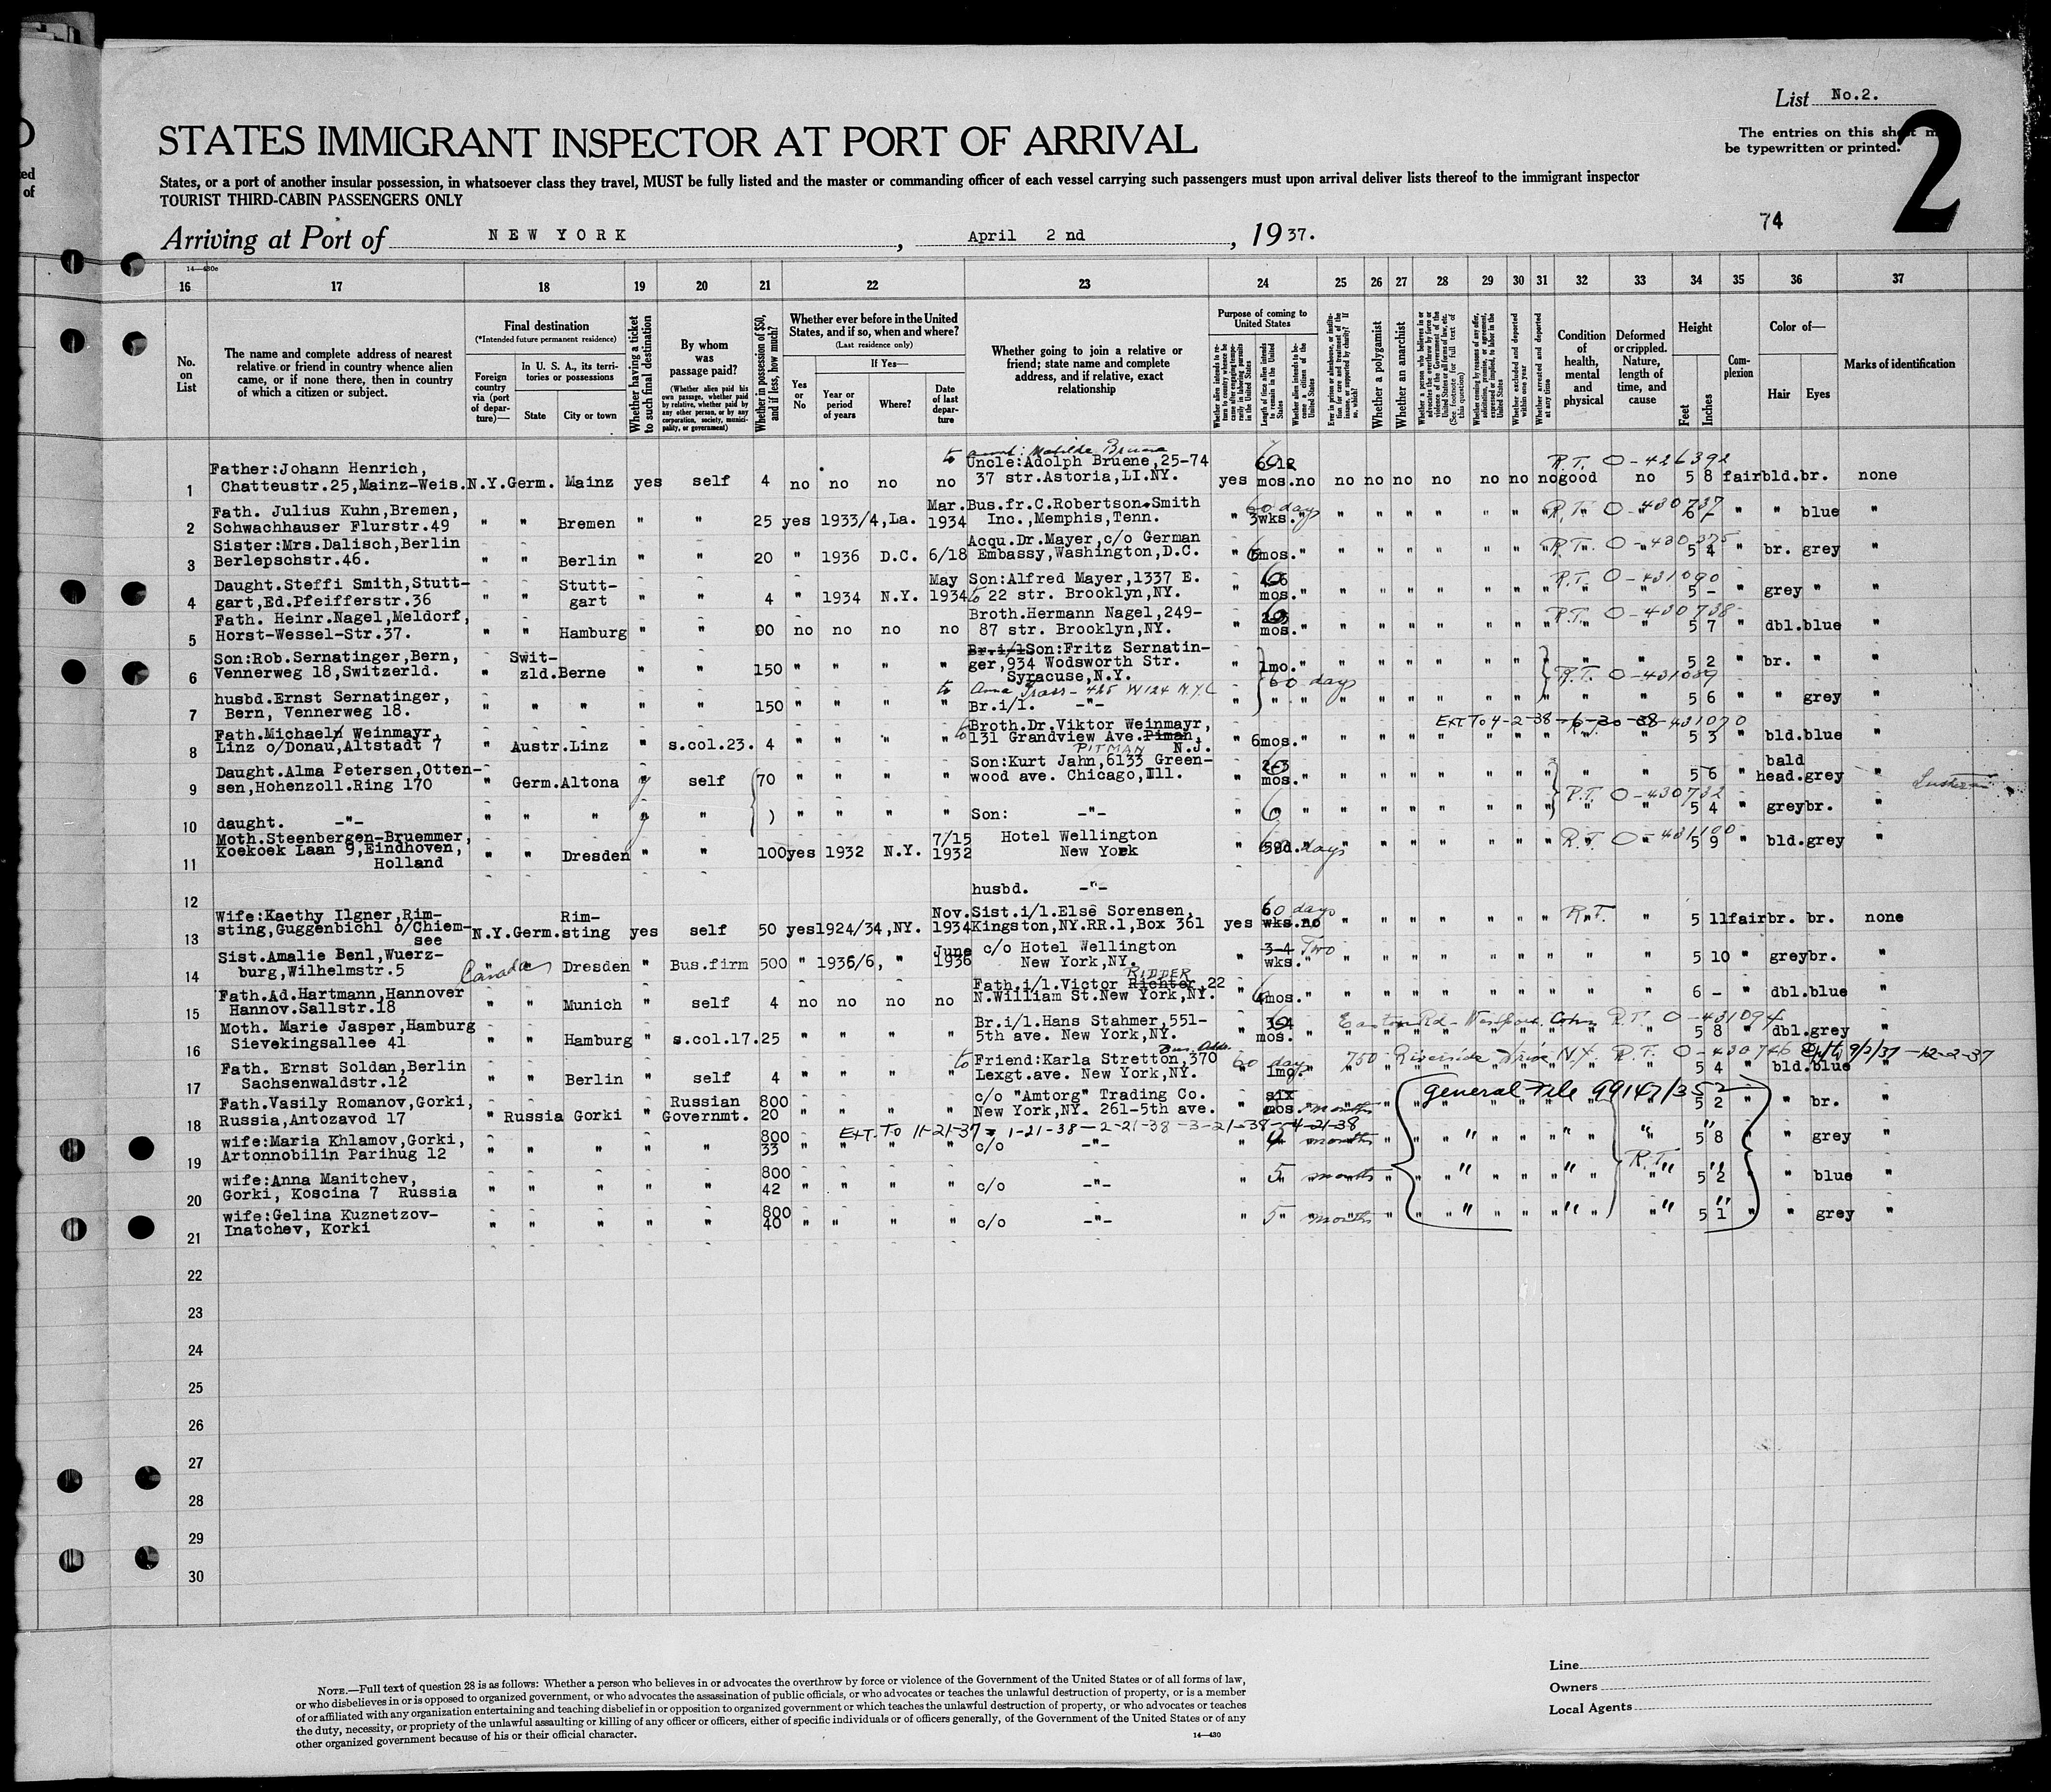 List No.2.
STATES IMMIGRANT INSPECTOR AT PORT OF ARRIVAL
The entries on this sheet m
be typewritten or printed.
2
States, or a port of another insular possession, in whatsoever class they travel, MUST be fully listed and the master or commanding officer of each vessel carrying such passengers must upon arrival deliver lists thereof to the immigrant inspector
TOURIST THIRD-CABIN PASSENGERS ONLY
74
Arriving at Port of NEW YORK, April 2nd, 1937.
14—430c
16 17 18 19 20 21 22 23 24 25 26 27 28 29 30 31 32 33 34 35 36 37
No. on List
The name and complete address of nearest relative or friend in country whence alien came, or if none there, then in country of which a citizen or subject.
Final destination
(*Intended future permanent residence)
Foreign country via (port of departure)—
In U. S. A., its territories or possessions
State
City or town
Whether having a ticket to such final destination
By whom was passage paid?
(Whether alien paid his own passage, whether paid by relative, whether paid by any other person, or by any corporation, society, municipality, or government)
Whether in possession of $50, and if less, how much?
Whether ever before in the United States, and if so, when and where?
(Last residence only)
Yes or No
If Yes—
Year or period of years
Where?
Date of last departure
Whether going to join a relative or friend; state name and complete address, and if relative, exact relationship
Purpose of coming to United States
Length of time alien intends to remain in the United States
Whether alien intends to become a citizen of the United States
Whether a polygamist
Whether an anarchist
Whether excluded and deported within one year
Whether arrested and deported at any time
Condition of health, mental and physical
Deformed or crippled. Nature, length of time, and cause
Height
Feet
Inches
Complexion
Color of—
Hair
Eyes
Marks of identification
to aunt: Matilde Bruene R.T. O-426392
1 Father:Johann Henrich, Chatteustr.25,Mainz-Weis. N.Y. Germ. Mainz yes self 4 no no no no Uncle:Adolph Bruene,25-74 37 str.Astoria,LI.NY. yes 6-12 mos. no no no no no no no no good no 5 8 fair bld. br. none
2 Fath. Julius Kuhn,Bremen, Schwachhauser Flurstr.49 " " Bremen " " 25 yes 1933/4,La. Mar. 1934 Bus.fr.C.Robertson.Smith Inc.,Memphis,Tenn. " 3wks. 60 days " R.T. O-430737 6 - " " blue "
3 Sister:Mrs.Dalisch,Berlin Berlepschstr.46. " " Berlin " " 20 " 1936 D.C. 6/18 Acqu.Dr.Mayer,c/o German Embassy,Washington,D.C. " 6mos. " R.T. O-430375 5 4 " br. grey "
4 Daught.Steffi Smith,Stuttgart,Ed.Pfeifferstr.36 " " Stuttgart " " 4 " 1934 N.Y. May 1934 to Son:Alfred Mayer,1337 E. 22 str. Brooklyn,NY. " 6 mos. " R.T. O-431090 5 - " grey " "
5 Fath. Heinr.Nagel,Meldorf, Horst-Wessel-Str.37. " " Hamburg " " 90 no no no no Broth.Hermann Nagel,249-87 str. Brooklyn,NY. " 6 mos. " R.T. O-430738 5 7 " dbl. blue "
6 Son:Rob.Sernatinger,Bern, Vennerweg 18,Switzerld. " Switzld. Berne " " 150 " " " " Br.i/l Son:Fritz Sernatinger,934 Wodsworth Str. Syracuse,N.Y. " 1mo. " 60 days R.T. O-431089 5 2 " br. " "
7 husbd.Ernst Sernatinger, Bern, Vennerweg 18. " " " " " 150 " " " " to Anna Trass - 425 W 124 N.Y.C Br.i/l. -"- " " " 5 6 " " grey "
8 Fath.Michael Weinmayr, Linz o/Donau,Altstadt 7 " Austr. Linz " s.col.23. 4 " " " " to Broth.Dr.Viktor Weinmayr, 131 Grandview Ave.Piman, PITMAN N.J. " 6mos. " Ext To 4-2-38-6-30-38 431070 5 3 " bld. blue "
9 Daught.Alma Petersen,Ottensen,Hohenzoll.Ring 170 " Germ. Altona " self 70 " " " " Son:Kurt Jahn,6133 Greenwood ave. Chicago,Ill. " 2-3 mos. " 5 6 " bald head. grey "
10 daught. -"- " " " " " ) " " " " Son: -"- " 6 " R.T. O-430732 5 4 " grey br. "
11 Moth.Steenbergen-Bruemmer, Koekoek Laan 9,Eindhoven, Holland " " Dresden " " 100 yes 1932 N.Y. 7/15 1932 Hotel Wellington New York " days " R.T. O-431100 5 9 " bld. grey "
12 husbd. -"-
13 Wife:Kaethy Ilgner,Rimsting,Guggenbichl o/Chiemsee N.Y. Germ. Rimsting yes self 50 yes 1924/34,NY. Nov. 1934 Sist.i/l.Else Sorensen, Kingston,NY.RR.1,Box 361 yes 60 days wks. no " R.T. " 5 11 fair br. br. none
14 Sist.Amalie Benl,Wuerzburg,Wilhelmstr.5 Canada " Dresden " Bus.firm 500 " 1936/6, " June 1936 c/o Hotel Wellington New York,NY. " 3-4 Two wks. " 5 10 " grey br. "
15 Fath.Ad.Hartmann,Hannover Hannov.Sallstr.18 " " Munich " self 4 no no no no Fath.i/l.Victor Richter RIDDER,22 N.William St.New York,NY. " 6mos. " 6 - " dbl. blue "
16 Moth. Marie Jasper,Hamburg Sievekingsallee 41 " " Hamburg " s.col.17. 25 " " " " Br.i/l.Hans Stahmer,551-5th ave. New York,NY. " 3-4 mos. " Easton Rd - Westport Conn R.T. O-431094 5 8 " dbl. grey "
17 Fath. Ernst Soldan,Berlin Sachsenwaldstr.12 " " Berlin " self 4 " " " " to Bus. Addr. Friend:Karla Stretton,370 Lexgt.ave. New York,NY. 60 days 1mo. 750 Riverside Drive N.Y. R.T. O-430746 9/2/37-12-2-37 5 4 " bld. blue "
18 Fath.Vasily Romanov,Gorki, Russia,Antozavod 17 " Russia Gorki " Russian Governmt. 800 20 " " " " c/o "Amtorg" Trading Co. New York,NY. 261-5th ave. " six mos. months " general File 99147/352 5 2 " " br. "
Ext. To 11-21-37 - 1-21-38 - 2-21-38 - 3-21-38 - 4-21-38
19 wife:Maria Khlamov,Gorki, Artonnobilin Parihug 12 " " " " " 800 33 " " " " c/o -"- " months " 5 8 " " grey "
20 wife:Anna Manitchev, Gorki, Koscina 7 Russia " " " " " 800 42 " " " " c/o -"- " 5 months " R.T. 5 2 " " blue "
21 wife:Gelina Kuznetzov-Inatchev, Korki " " " " " 800 40 " " " " c/o -"- " 5 months " 5 1 " " grey "
22
23
24
25
26
27
28
29
30
NOTE.—Full text of question 28 is as follows: Whether a person who believes in or advocates the overthrow by force or violence of the Government of the United States or of all forms of law,
or who disbelieves in or is opposed to organized government, or who advocates the assassination of public officials, or who advocates or teaches the unlawful destruction of property, or is a member
of or affiliated with any organization entertaining and teaching disbelief in or opposition to organized government or which teaches the unlawful destruction of property, or who advocates or teaches
the duty, necessity, or propriety of the unlawful assaulting or killing of any officer or officers, either of specific individuals or of officers generally, of the Government of the United States or of any
other organized government because of his or their official character.
14—430
Line
Owners
Local Agents